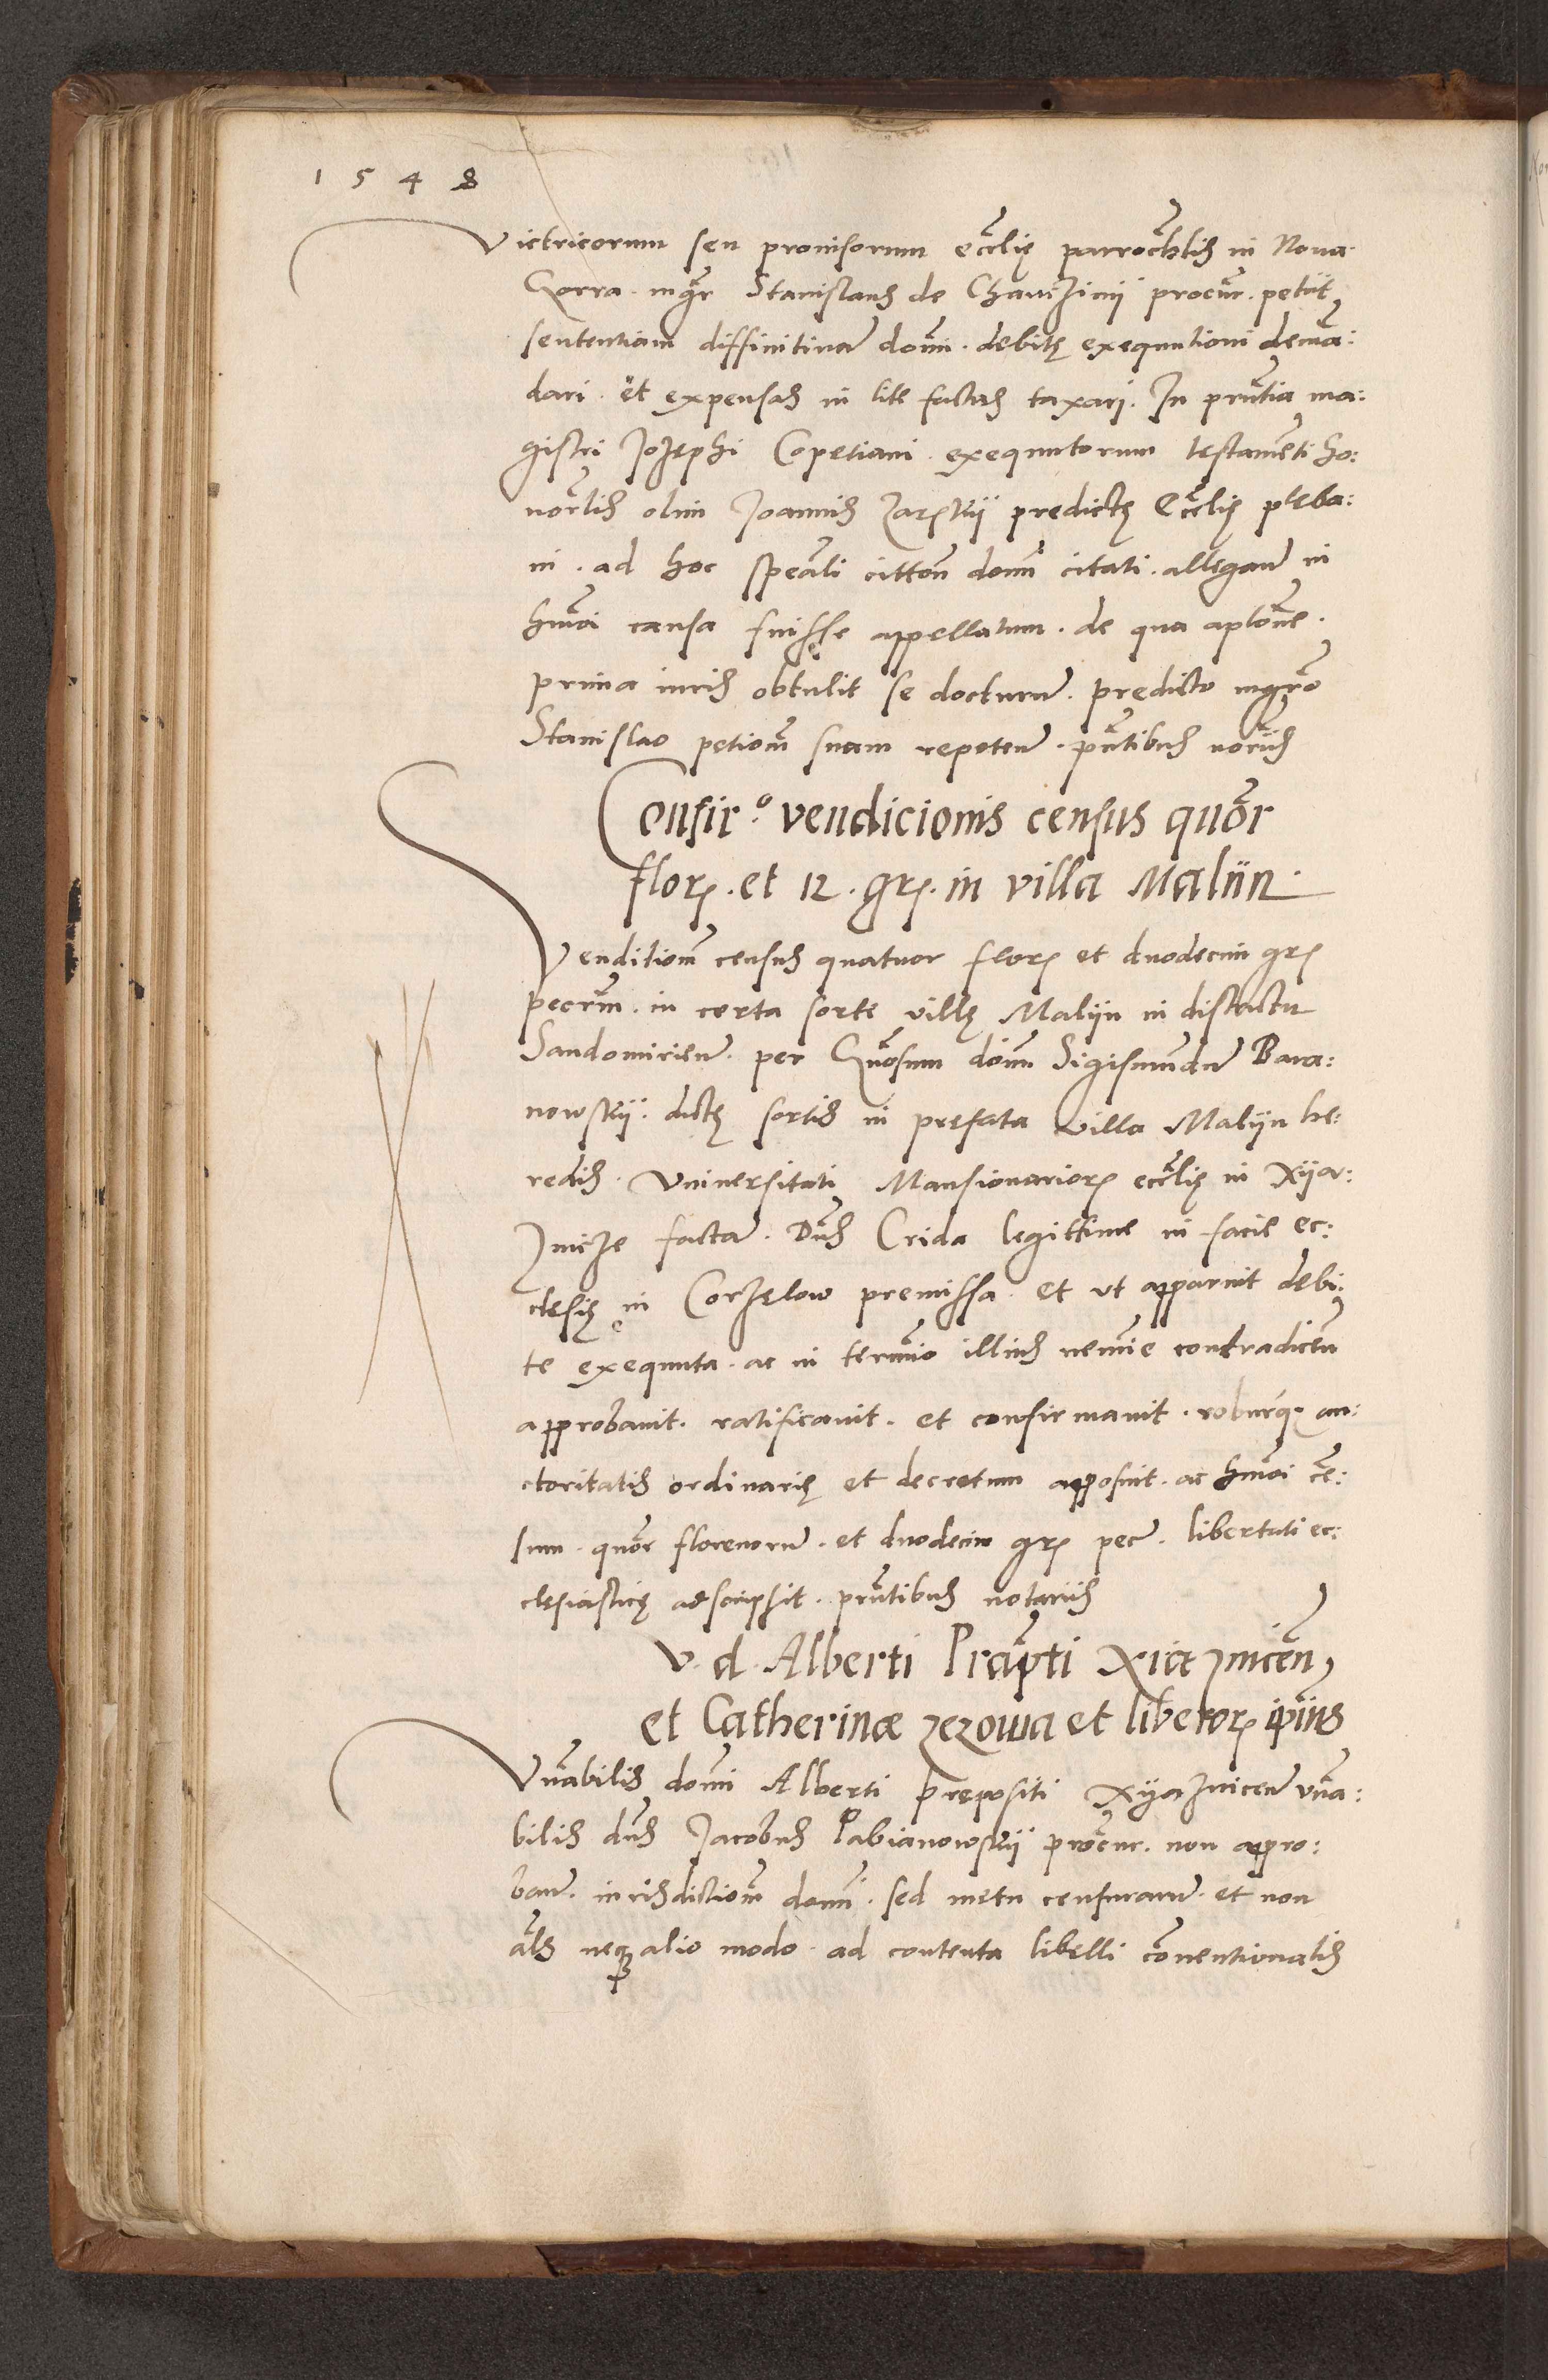 1548
Victricorum seu prouisorum ecclię parrochlis in Noua
Gorra. mgr Stanislaus de Chamzinÿ procur. petiit
sententiam diffinitiuã domi. debitę exequutioni demã:
dari. et expensas in lite factas taxari. In pñtia ma:
gistri Jozephi Copetiani exequutorum testamẽti ho:
norlis olim Joannis predictę Ecclię pleba:
ni. ad hoc speãli cittoñ domi citati. allegañ in
hmõi causa fuisse appellatum. de qua aplõne.
prima iuris obtulit se docturũ. predicto mgrõ
Stanislao petiom suam repeteñ. pñtibus noriis
Confir.º vendicionis census quõr
flor. et 12. gr. in villa Maliin.
Venditiom census quatuor flor et duodecim gr
pecrm. in certa sorte villę Malijn in districtu
Sandomirieñ. per Gñosum dom Sigismundũ Bara:
nowskÿ. dictę sortis in pręfata villa Malijn hę:
redis. Vniuersitati Mansionarior ecclię in Xija:
Znicze factã. Dñs Crida legittime in facie ec:
clesię in Corzelow premissa. et vt apparuit debi:
te exequuta. ac in termio illius nemie contradiceñ
approbauit. ratificauit. et confirmauit. roburq3 au:
ctoritatis ordinarię et decretum apposuit. ac hmõi cẽ:
sum. quõr florenorũ. et duodecim gr pec. libertati ec:
clesiasticę adscripsit. pñtibus notariis
V. d. Alberti Præpti Xiæznicẽn
et Catherinæ zezowa et liberor ipiius
Vñabilis domi Alberti prępositi Xijazniceñ vña:
bilis dñs Jacobus Pabianowskÿ procur. non appro:
bañ. iurisdictiom domi. sed metu censurarũ. et non
als neq3 alio modo. ad contenta libelli cõuentionalis